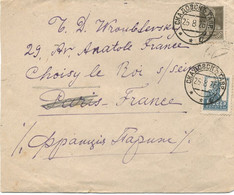 T. D. Wroublevsky
29, Av. Anatole France
Choisy le Roi s/Seine
Paris - France
/Франция Париж/
25 8
25 8